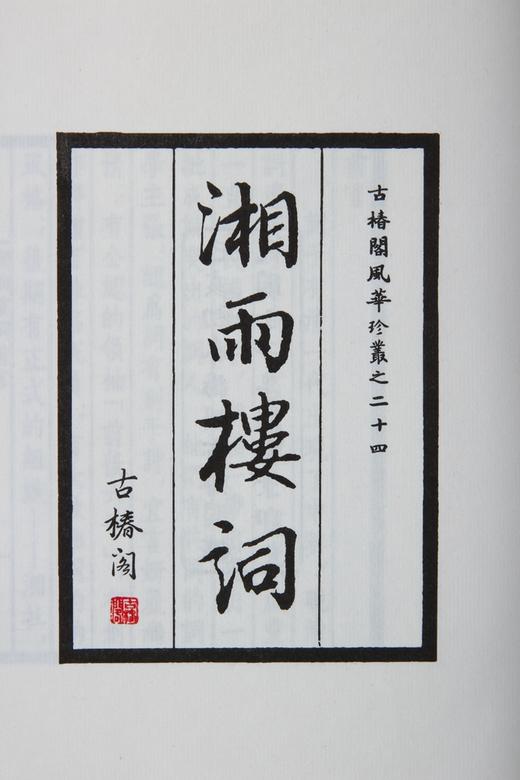 古椿閣風華珍叢之二十四
湘雨樓詞
古椿阁